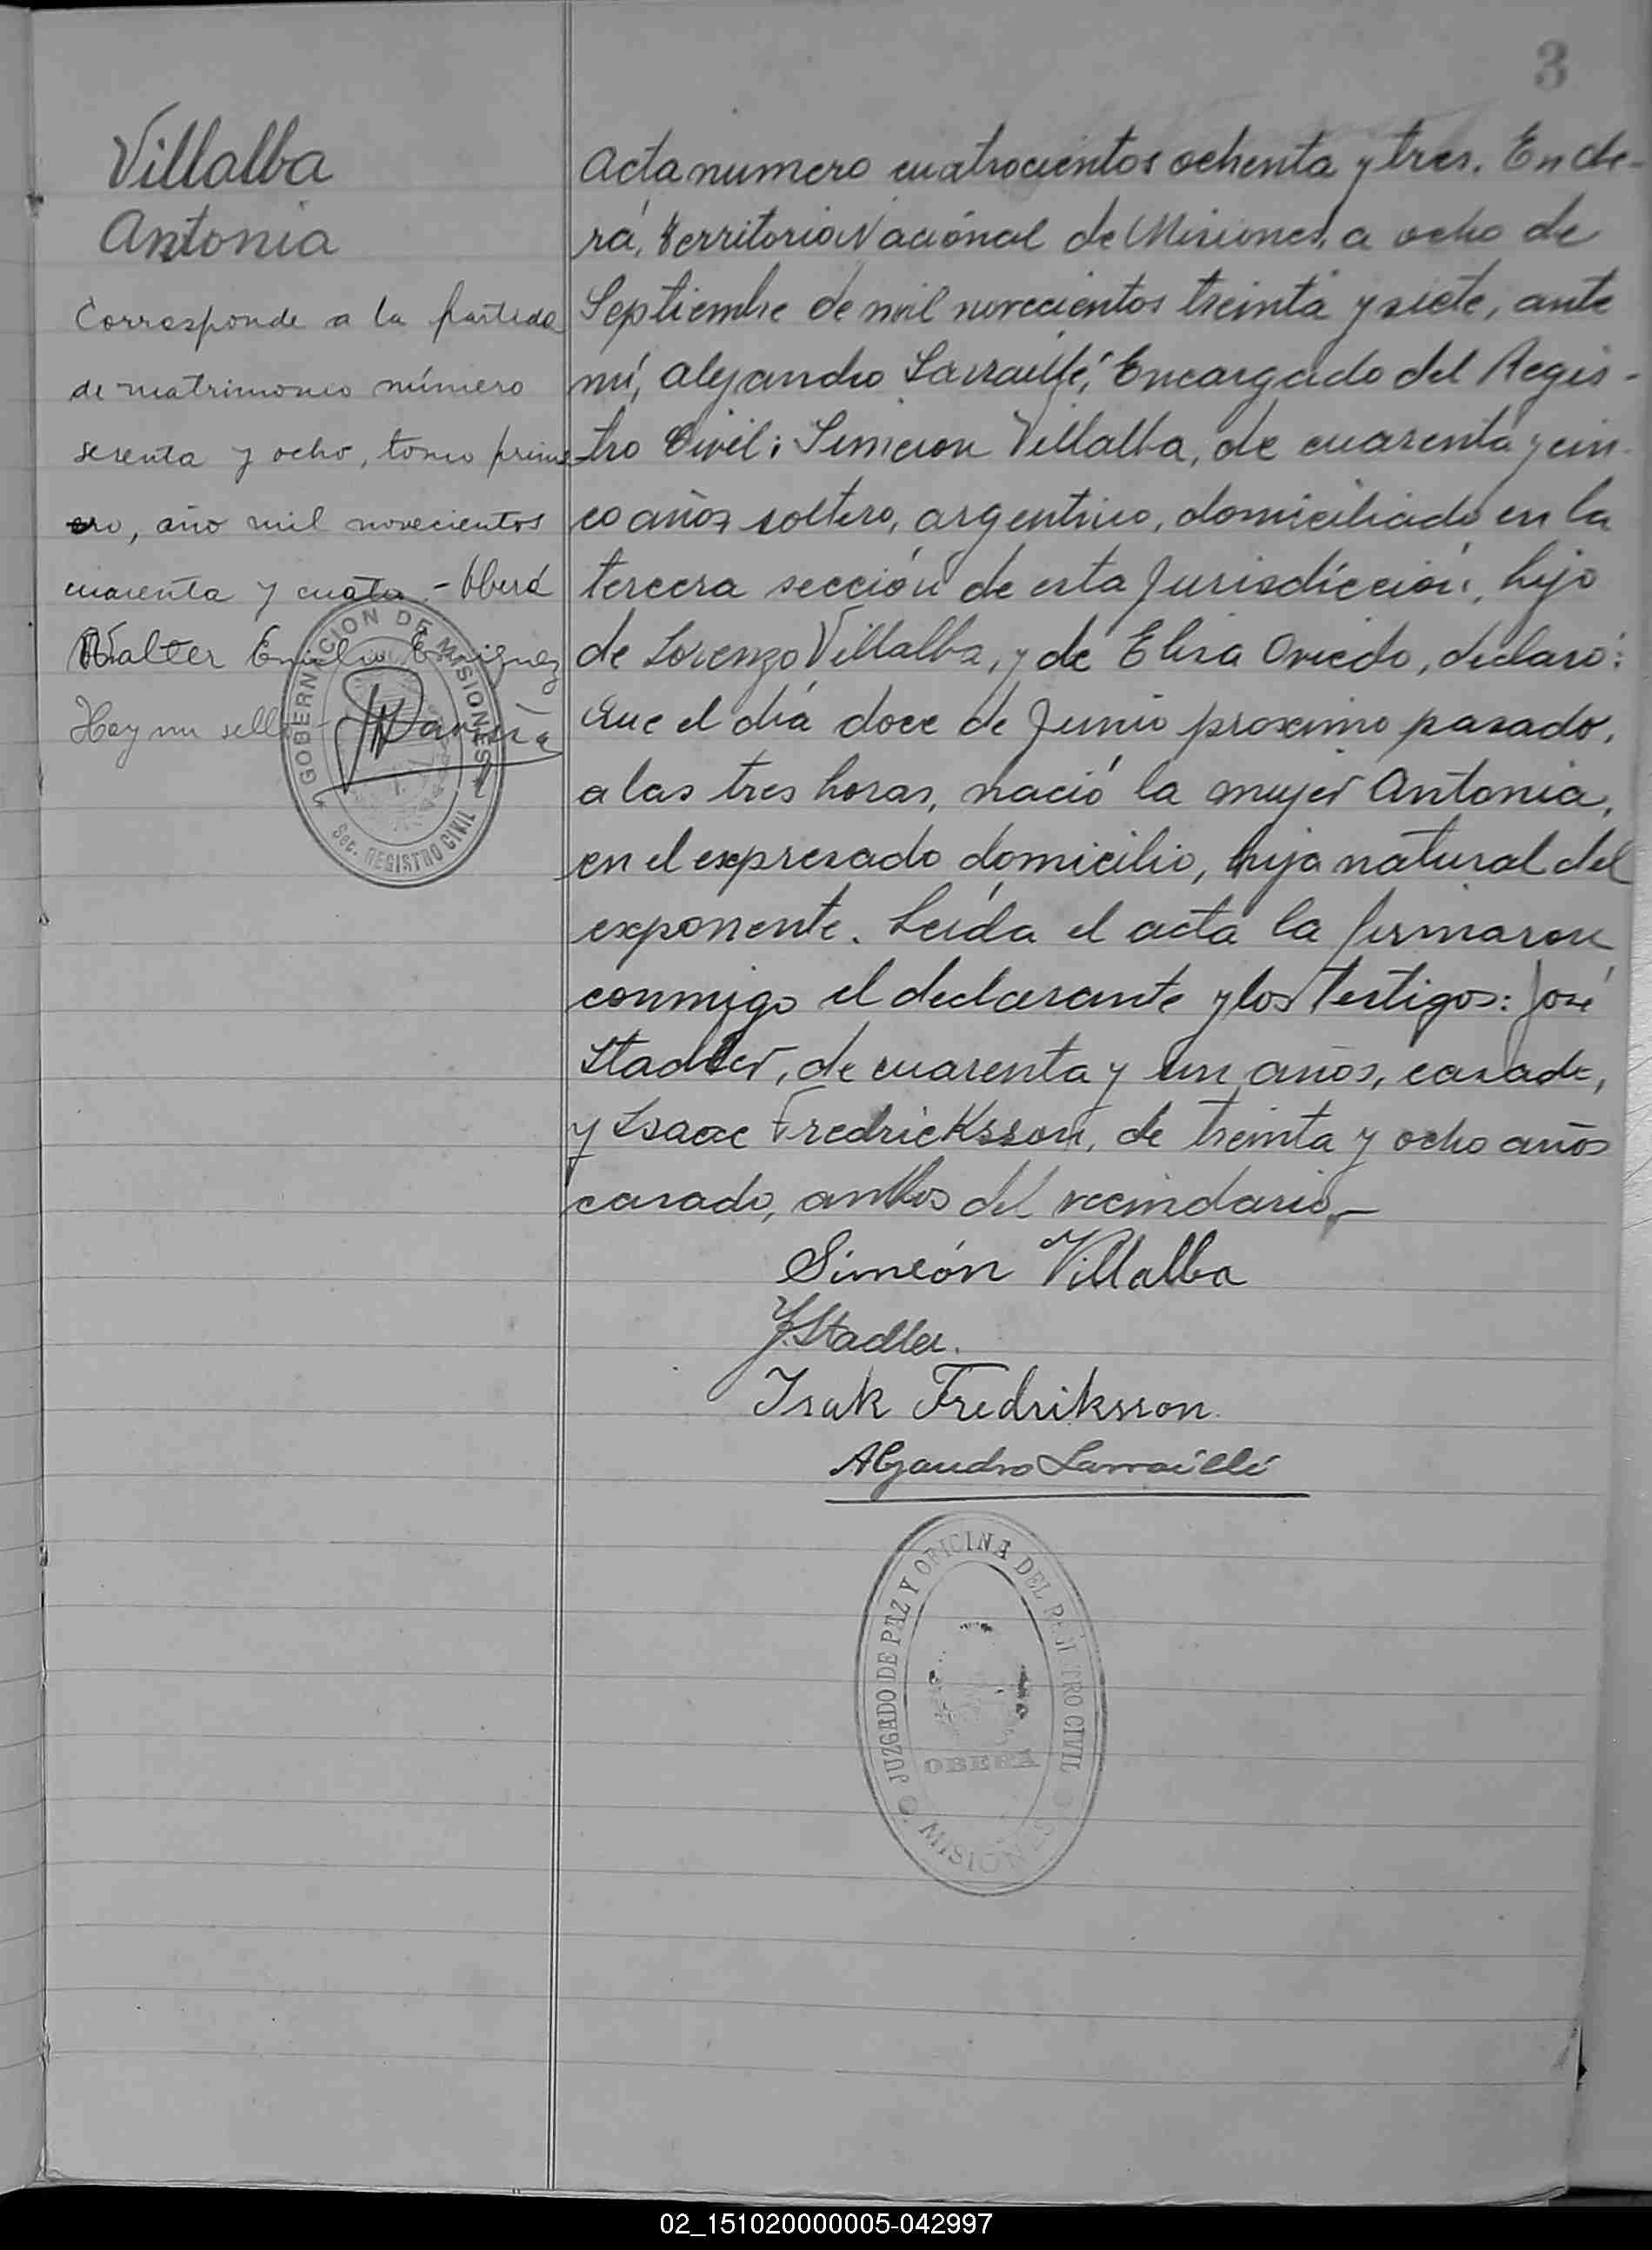 3
Villalba
Antonia
Corresponde a la partida
de matrimonio número
sesenta y ocho, tomo prim
ero, año mil novecientos
cuarenta y cuatro.- Oberá
Walter Emilio
Hay un sello
GOBERNACION DE MISIONES
Sec. REGISTRO CIVIL
Acta numero cuatrocientos ochenta y tres. En Obe-
rá, territorio Nacional de Misiones, a ocho de
Septiembre de mil novecientos treinta y siete, ante
mí, Alejandro Larraillé, Encargado del Regis-
tro Civil: Simeon Villalba, de cuarenta y cin-
co años soltero, argentino, domiciliado en la
tercera sección de esta Jurisdicción, hijo
de Lorenzo Villalba, y de Elisa Oviedo, declaró:
Que el día doce de Junio proximo pasado,
a las tres horas, nació la mujer Antonia,
en el expresado domicilio, hija natural del
exponente. Leída el acta la firmaron
conmigo el declarante y los testigos: José
Stadler, de cuarenta y un años, casado,
y Isaac Fredricksson, de treinta y ocho años
casado, ambos del vecindario.-
Simeón Villalba
J. Stadler.
Isak Fredriksson.
Alejandro Larraillé
JUZGADO DE PAZ Y OFICINA DEL REGISTRO CIVIL
OBERA
MISIONES
02_151020000005-042997